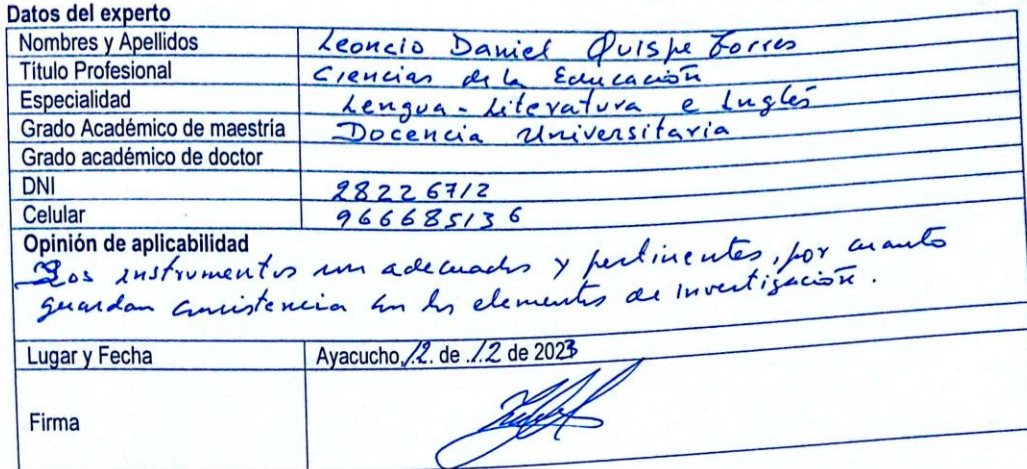 Datos del experto
Nombres y Apellidos Leoncio Daniel Quispe Torres
Título Profesional Ciencias de la Educación
Especialidad Lengua - Literatura e Inglés
Grado Académico de maestría Docencia Universitaria
Grado académico de doctor
DNI 28226712
Celular 966685136
Opinión de aplicabilidad
Los instrumentos son adecuados y pertinentes, por cuanto
guardan consistencia con los elementos de investigación.
Lugar y Fecha Ayacucho, 12. de .12 de 2023
Firma